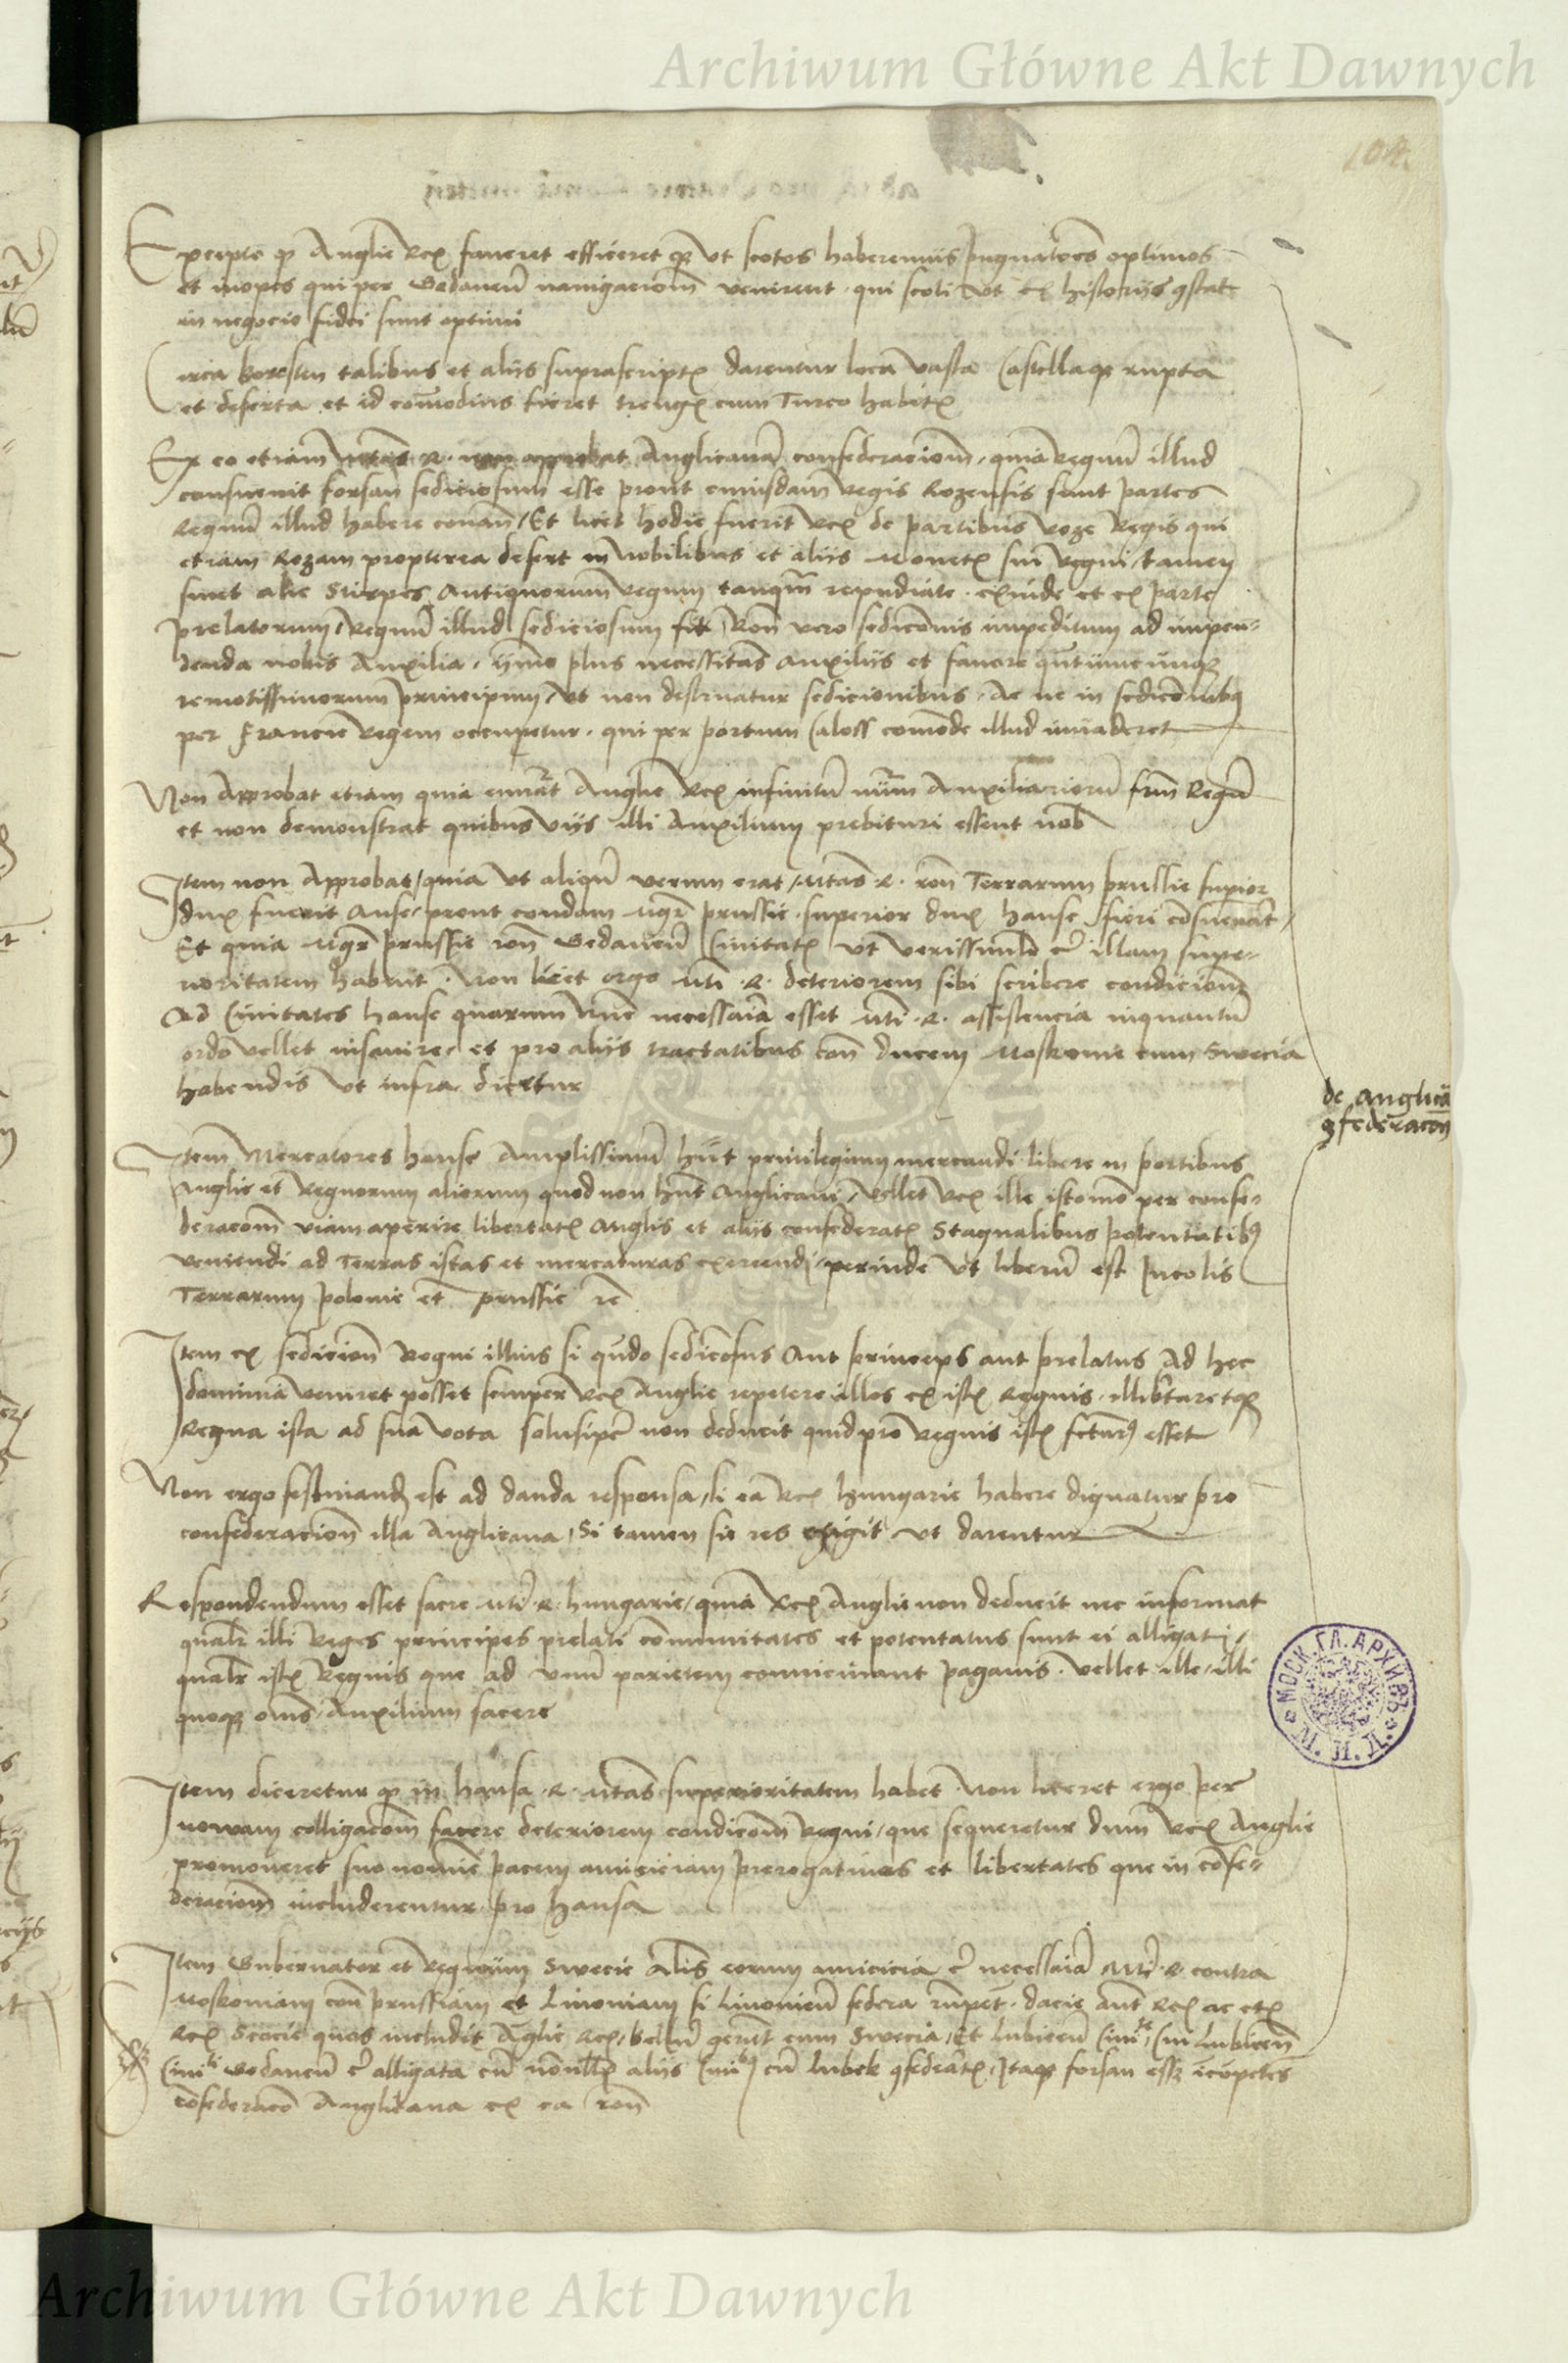 Archiwum Główne Akt Dawnych
104.
Excepto qꝫ Anglie Rex faveret efficeret qꝫ ut scotos haberemus pugnatores optimos
et inopes qui per Gedaneñ navigaciom̄ venirent. qui scoti ut ex historiis ꝯstat
in negocio fidei sunt optimi
Circa Boresten talibus et aliis suprascriptꝭ darentur loca vasta Castellaqꝫ rupta
et deserta et id com̄odius fieret treugꝭ cum Turco habitꝭ
Ex eo etiam Mtas R. non approbat Anglicanā confederaciom̄, quia Regnū illud
consuevit forsan sediciosum esse prout cuiusdam regis Rozensis sunt partes
Regnū illud habere conan̄ / Et licet hodie fuerit Rex de partibus roze Regis qui
etiam Rozam propterea defert in nobilibus et aliis Monetꝭ sui regni / tamen
sunt alie Stirpes Antiquorum regum tanqm̄ repudiate. exinde et ex parte
prelatorum, Regnū illud sediciosum fit, Ron̄ vero sedicionis impeditum ad impen-
denda nobis Auxilia, ymo plus necessitas auxiliis et favore qn̄tumcunqꝫ
remotissimorum principum, ut non destruatur sedicionibus, Ac ne in sedicōnibꝫ
per Francie regem occupetur. qui per portum Caloss com̄ode illud invaderet
Non Approbat etiam quia enārat Anglie Rex infinitū nūm Auxiliariorū frm̄ Regū
et non demonstrat quibus viis illi Auxilium prebituri essent nob̄
Item non Approbat, quia ut aliqn̄ verum erat, Mtas R. ron̄ Terrarum prussie supior
dux fuerit Anse, prout condam Mgr̄ prussie. superior dux hanse fieri consuevāt,
Et quia Mgr̄ prussie ron̄ Gedaneñ Civitatꝭ ut verissimile ē illam supe-
rioritatem habuit. Non licet ergo Mti R. deteriorem sibi scribere condiciom̄
Ad Civitates hanse quarum nūc necessaria esset Mti R. assistencia inquantū
ordo vellet insanire, et pro aliis tractatibus con̄ ducem Moskovie cum Swecia
habendis ut infra dicetur
de Anglicā
ꝯfederacōn
Item Mercatores hanse Amplissimū hn̄t privilegium mercandi libere in portibus
Anglie et Regnorum aliorum quod non hn̄t Anglicani, vellet Rex ille istomō per confe-
deracom̄ viam aperire libertatꝭ Anglis et aliis confederatꝭ Stagnalibus potentatibꝫ
veniendi ad Terras istas et mercaturas exercendi, perinde ut liberū est Incolis
Terrarum polonie et prussie rē
Item ex sedicion̄ Regni illius si qn̄do sedicōsus Aut princeps aut prelatus Ad hec
dominia veniret posset semper Rex Anglie repetere illos ex istꝭ Regnis,
Regna ista ad sua vota non deducit quid pro regnis istꝭ fcturꝫ esset
Non ergo festinandꝫ est ad danda responsa, si ea Rex hungarie habere dignatur pro
confederacion̄ illa Anglicana, Si tamen sic res exigit ut darentur
Respondendum esset sacre Mti R. hungarie, quia Rex Anglie non deducit nec informat
qualr̄ illi Reges principes prelati com̄unitates et potentatus sunt ei alligati,
qualr̄ istꝭ Regnis que ad unū parietem convicinant paganis. vellet ille, illi
quoqꝫ om̄s, Auxilium facere
Item diceretur qꝫ in hansa R. Mtas superioritatem habet. Non liceret ergo per
novam colligacom̄ facere deteriorem condicom̄ Regni, que sequeretur dum Rex Anglie
promoveret suo nomīe pacem amiciciam prerogativas et libertates que in cōfe-
deraciom̄ includerentur pro hansa
Item Gubernator et Regnum Swecie Alis eorum amicicia ē necessaria Mti R. contra
Moskoviam con̄ prussiam et Livoniam si Livonieñ federa rumpēt. dacie aut̄ Rex ac etꝭ
Rex Scocie quos includit Anglie Rex, bellū gerūt cum Swecia, Et Lubiceñ Civitꝭ, Cui Lubiceñ
Civiti Gedaneñ ē alligata cū nōnullꝭ aliis Civitbꝫ cū Lubek ꝯfederatꝭ, Itaqꝫ forsan
cōfederacō Anglicana ex ea ron̄
МОСК. ГЛ. АРХИВЪ
Archiwum Główne Akt Dawnych